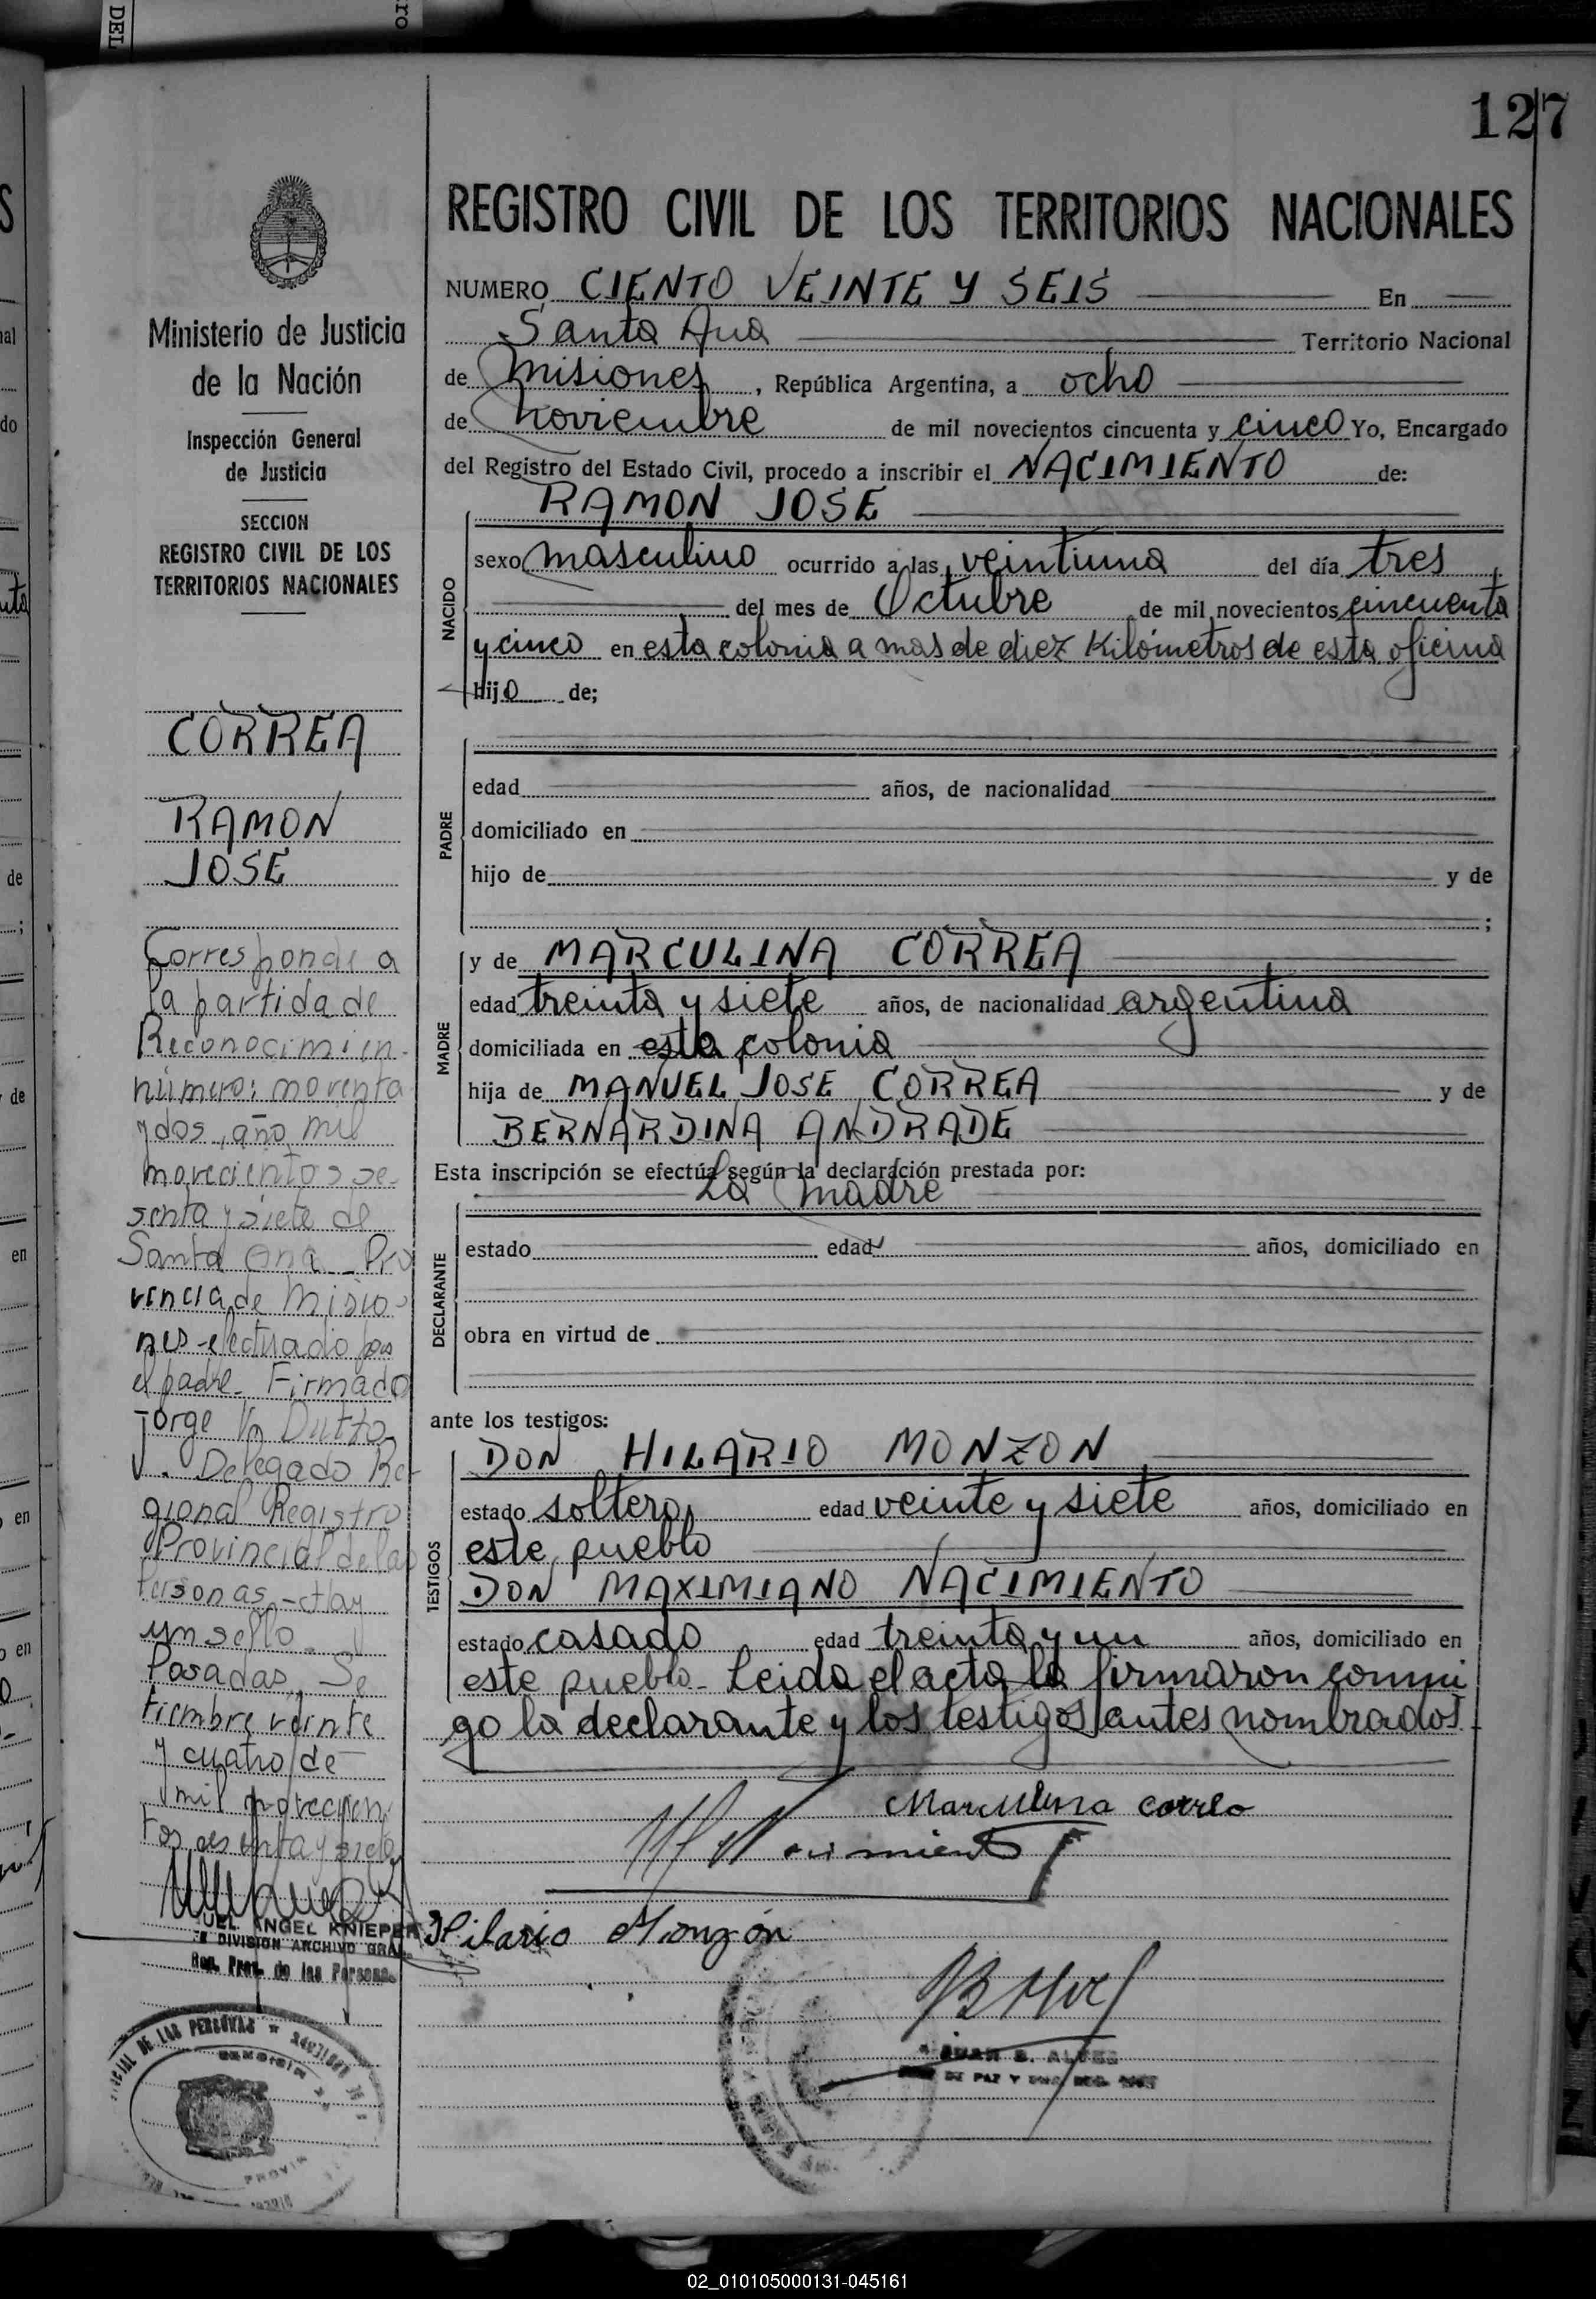 127
REGISTRO CIVIL DE LOS TERRITORIOS NACIONALES
NUMERO CIENTO VEINTE Y SEIS En
Santa Ana Territorio Nacional
de Misiones, República Argentina, a ocho
de noviembre de mil novecientos cincuenta y cinco Yo, Encargado
del Registro del Estado Civil, procedo a inscribir el NACIMIENTO de:
RAMON JOSE
NACIDO
sexo masculino ocurrido a las veintiuna del día tres
del mes de Octubre de mil novecientos cincuenta
y cinco en esta colonia a mas de diez Kilómetros de esta oficina
hijo de;
PADRE
edad años, de nacionalidad
domiciliado en
hijo de y de
;
MADRE
y de MARCULINA CORREA
edad treinta y siete años, de nacionalidad argentina
domiciliada en esta colonia
hija de MANUEL JOSE CORREA y de
BERNARDINA ANDRADE
Esta inscripción se efectúa según la declaración prestada por:
La madre
DECLARANTE
estado edad años, domiciliado en
obra en virtud de
ante los testigos:
TESTIGOS
DON HILARIO MONZON
estado soltero edad veinte y siete años, domiciliado en
este pueblo
DON MAXIMIANO NACIMIENTO
estado casado edad treinta y un años, domiciliado en
este pueblo. Leida el acta la firmaron conmi
go la declarante y los testigos antes nombrados
Marculina correa
Hilario Monzón
JUAN B. ALVES
DE PAZ Y
Ministerio de Justicia
de la Nación
Inspección General
de Justicia
SECCION
REGISTRO CIVIL DE LOS
TERRITORIOS NACIONALES
CORREA
RAMON
JOSE
Corresponde a
la partida de
Reconocimien-
número: noventa
y dos, año mil
novecientos se-
senta y siete de
Santa Ana - Pro
vincia de Misio-
nes - efectuado por
el padre - Firmado
Jorge Dutto
Delegado Re-
gional Registro
Provincial de las
Personas - Hay
un sello -
Posadas, Se
tiembre veinte
y cuatro de
mil novecien
tos sesenta y siete
UEL ANGEL KNIEPER
DIVISION ARCHIVO GRAL.
Reg. Prov. de las Personas
CIAL DE LAS PERSONAS
02_010105000131-045161